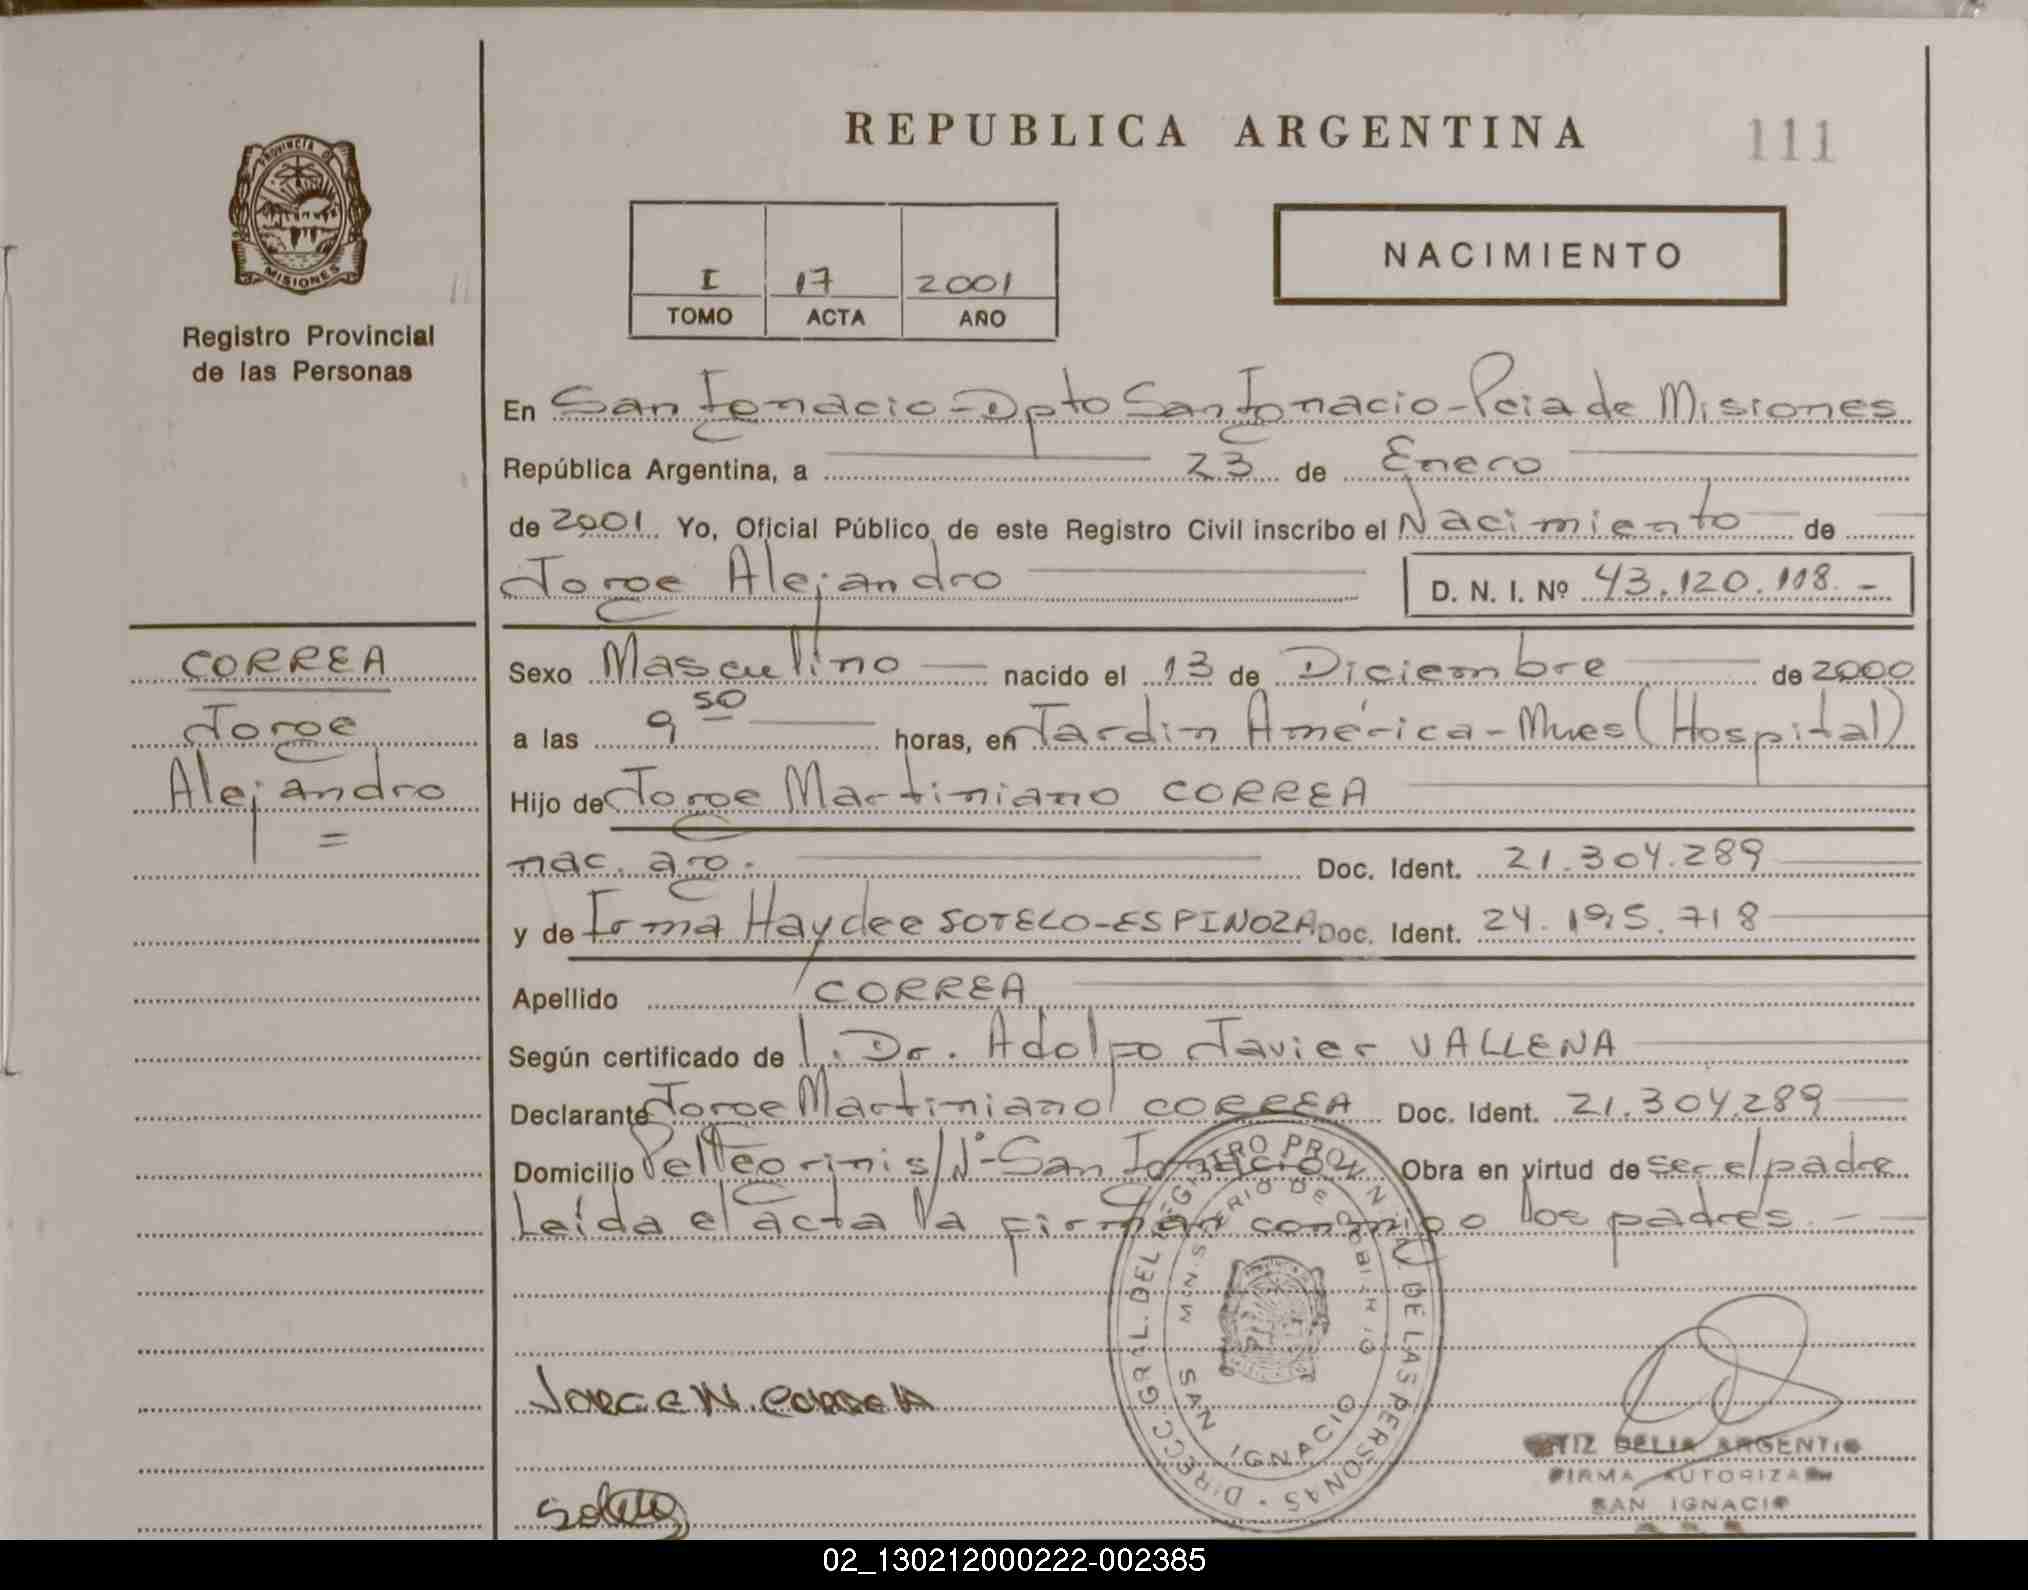 REPUBLICA ARGENTINA
111
PROVINCIA DE
MISIONES
Registro Provincial
de las Personas
I 17 2001
TOMO ACTA AÑO
NACIMIENTO
En San Ignacio - Dpto San Ignacio - Pcia de Misiones
República Argentina, a 23 de Enero
de 2001 Yo, Oficial Público de este Registro Civil inscribo el Nacimiento de
Jorge Alejandro D. N. I. Nº 43.120.118.-
CORREA
Jorge
Alejandro
=
Sexo Masculino nacido el 13 de Diciembre de 2000
a las 9 50 horas, en Jardin América - Mnes (Hospital)
Hijo de Jorge Martiniano CORREA
nac. arg. Doc. Ident. 21.304.289
y de Irma Haydee SOTELO-ESPINOZA Doc. Ident. 24.195.718
Apellido CORREA
Según certificado de l. Dr. Adolfo Javier VALLENA
Declarante Jorge Martiniano CORREA Doc. Ident. 21.304.289
Domicilio Pellegrini s/Nº - San Ignacio Obra en virtud de ser el padre
Leída el acta la firman conmigo los padres. -
DIRECC GRAL. DEL REGISTRO PROVINCIAL DE LAS PERSONAS
MINISTERIO DE GOBIERNO
SAN IGNACIO
JORGE M. CORREA
DELIA ARGENTI
FIRMA AUTORIZADA
SAN IGNACIO
02_130212000222-002385